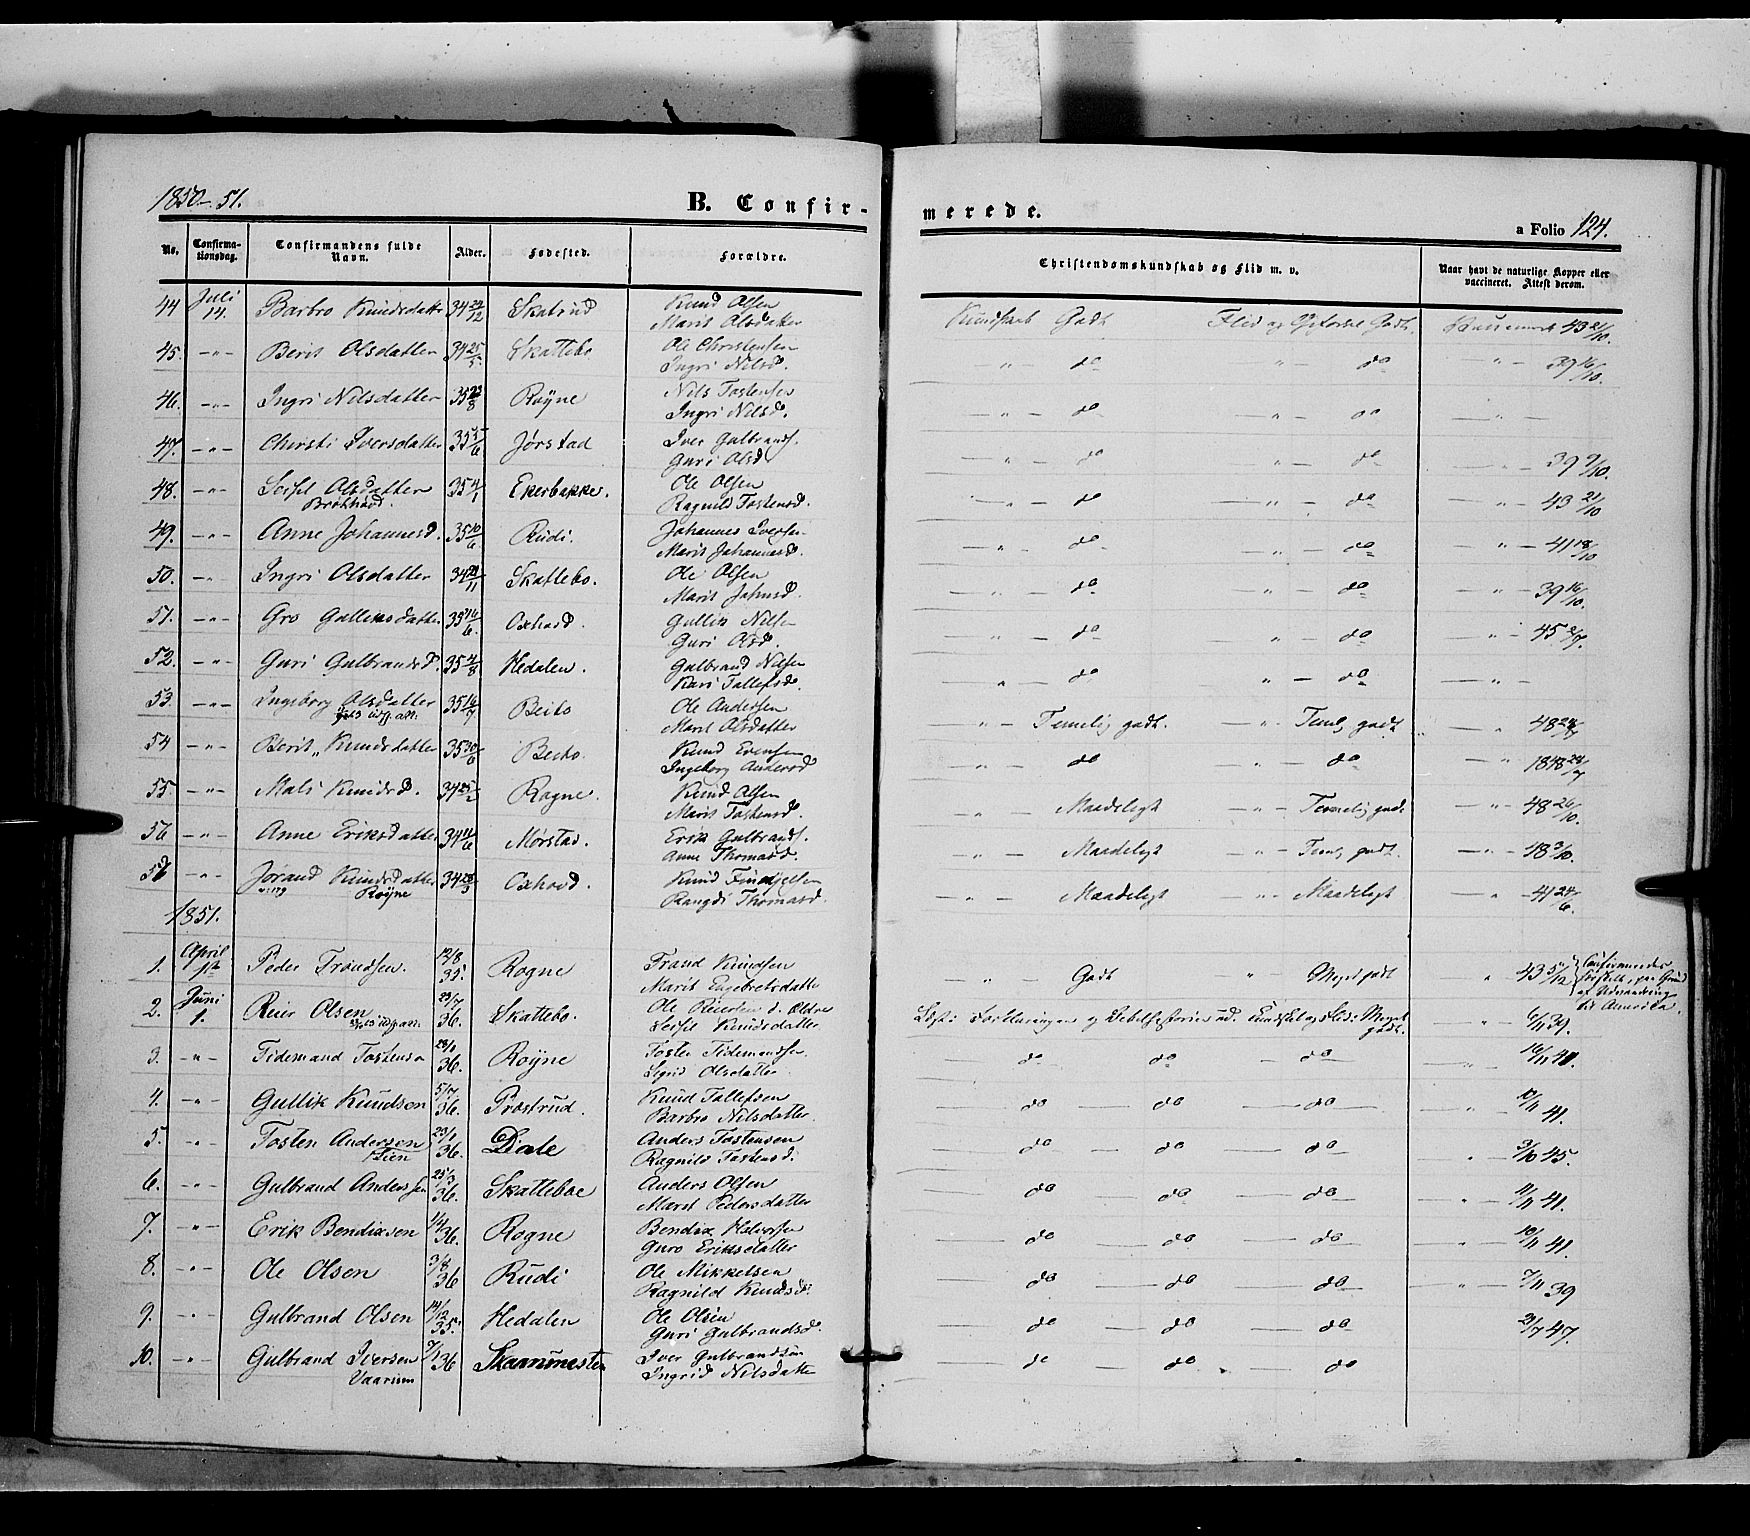 1850-51.
B. Confir-
merede.
a Folio 124.
No. Confirma-tionsdag. Confirmandens fulde Navn. Alder. Fødested. Forældre. Christendomskundskab og Flid m. v. Naar havt de naturlige Kopper eller vaccineret. Attest derom.
44 Juli 14. Barbro Knudsdatter 34 22/12 Skatrud Knud Olsen Marit Olsdatter Kundskab Godt Flid og Godt. 43 21/10.
45. -"- Berit Olsdatter 34 25/5 Skattebo Ole Christensen Ingri Nilsd. " - do " - do " - 39 16/10.
46. -"- Ingri Nilsdatter 35 23/8 Røyne Nils Tostensen Ingri Nilsd. " - do " - do " -
47. -"- Chirsti Iversdatter 35 5/6 Jørstad Iver Gulbrands. Guri Olsd " - do " - do " - 39 9/10.
48. -"- Olsdatter 35 4/1 Ekerbakke. Ole Olsen Ragnild Tostensd. " - do " - do " - 43 21/10
49. -"- Anne Johannesd. 35 10/6 Rudi. Johannes Iversen Marit Johannesd. " - do " - do " - 41 18/10
50. -"- Ingri Olsdatter 34 21/11 Skattebo. Ole Olsen Marit Johnsd. " - do " - do " - 39 16/10.
51. -"- Gro Gulliksdatter 35 16/6 Oxhovd. Gullik Nilsen Guri Olsd. " - do " - do " - 45 2/7.
52. -"- Guri Gulbrandsd 35 4/8 Hedalen. Gulbrand Nilsen Kari Tollefsd. " - do " - do " -
53. -"- Ingeborg Olsdatter 35 16/7 Beito Ole Andersen Marit Olsdatter " - Temelig godt. " - Teml. godt " - 48 28/7
54 -"- Berit Knudsdatter 35 30/6 Beito. Knud Evensen Ingeborg Andersd " - do " - do " 1848 28/7
55. -"- Mali Knudsd. 34 25/2 Rogne. Knud Olsen Marit Tostensd. " - Maadeligt " - Temelig godt " - 48 26/10.
56 -"- Anne Eriksdatter 34 11/6 Mørstad. Erik Gulbrands. Anne Thomasd. " - Maadeligt " - Teml. godt. " - 48 3/10.
57 -"- Jørand Knudsdatter Røyne 34 28/3 Oxhovd. Knud Rangdi Thomasd. " - Maadeligt " - Maadeligt " 41 24/6.
1851.
1. April Peder Trondsen. 12/8 35. Rogne Trond Knudsen Marit Engebretsdatter " - Godt " Meget godt " 43 5/12 Confirmeredes paa Grund af Udvandring til Amerika.
2. Juni 1. Reier Olsen 23/7 36. Skattebo. Ole Reiersen d. Ældre Knudsdatter Forklaringen og Bibelhistorien ud. Kundskab og Flid: Meget godt. " - 6/11 39.
3. -"- Tidemand Tostensen 23/1 36. Røyne Tosten Tidemandsen Sigrid Olsdatter do do do " - 16/11 41.
4. -"- Gullik Knudsen 5/7 36. Prøstrud. Knud Tollefsen Barbro Nilsdatter do do do " - 41.
5. -"- Tosten Andersen Lien 23/1 36. Dale Anders Tostensen Ragnild Tostensd. do do do " - 3/10 45.
6. -"- Gulbrand Andersen 25/3 36. Skatteboe Anders Olsen Marit Pedersdatter do do do " - 11/11 41.
7. -"- Erik Bendixsen 1/4 36. Rogne Bendix Halvorsen Guro Eriksdatter do do do " - 10/11 41.
8. -"- Ole Olsen 3/8 36 Rudi Ole Mikkelsen Ragnild Knudsd. do do do " - 7/11 39
9. -"- Gulbrand Olsen 14/12 35. Hedalen Ole Olsen Guri Gulbrandsd. do do do 2/7 47.
10. -"- Gulbrand Iversen 7/1 36 Iver Gulbrandsen Ingrid Nilsdatter do do do